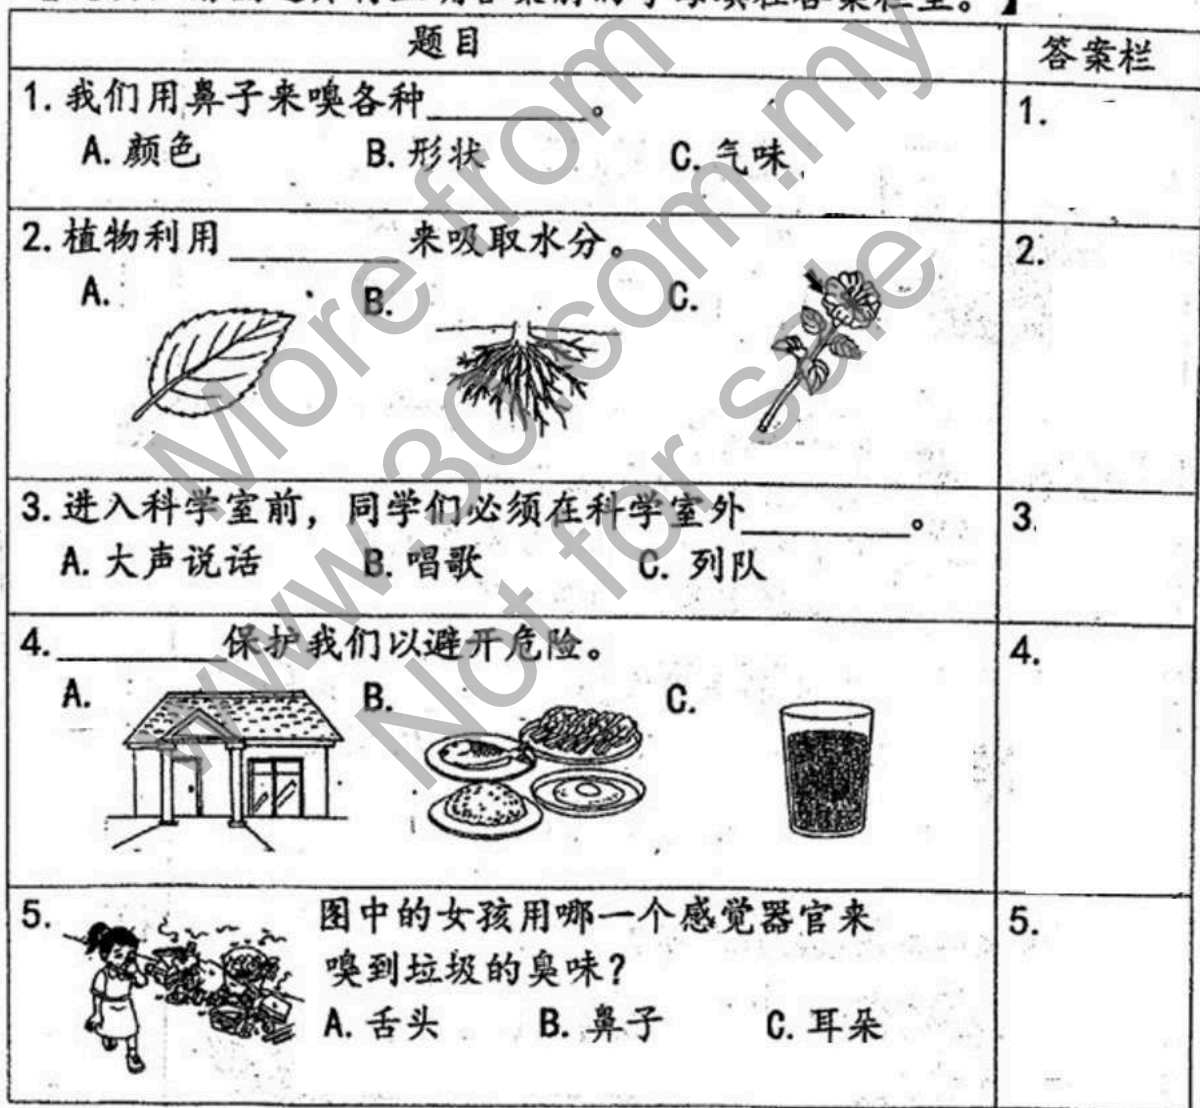 题目 答案栏
1. 我们用鼻子来嗅各种________。 1.
A. 颜色 B. 形状 C. 气味
2. 植物利用________来吸取水分。 2.
A. B. C.
3. 进入科学室前，同学们必须在科学室外________。 3.
A. 大声说话 B. 唱歌 C. 列队
4. ________保护我们以避开危险。 4.
A. B. C.
5. 图中的女孩用哪一个感觉器官来 5.
嗅到垃圾的臭味？
A. 舌头 B. 鼻子 C. 耳朵
More from
www.30.com.my
Not for sale